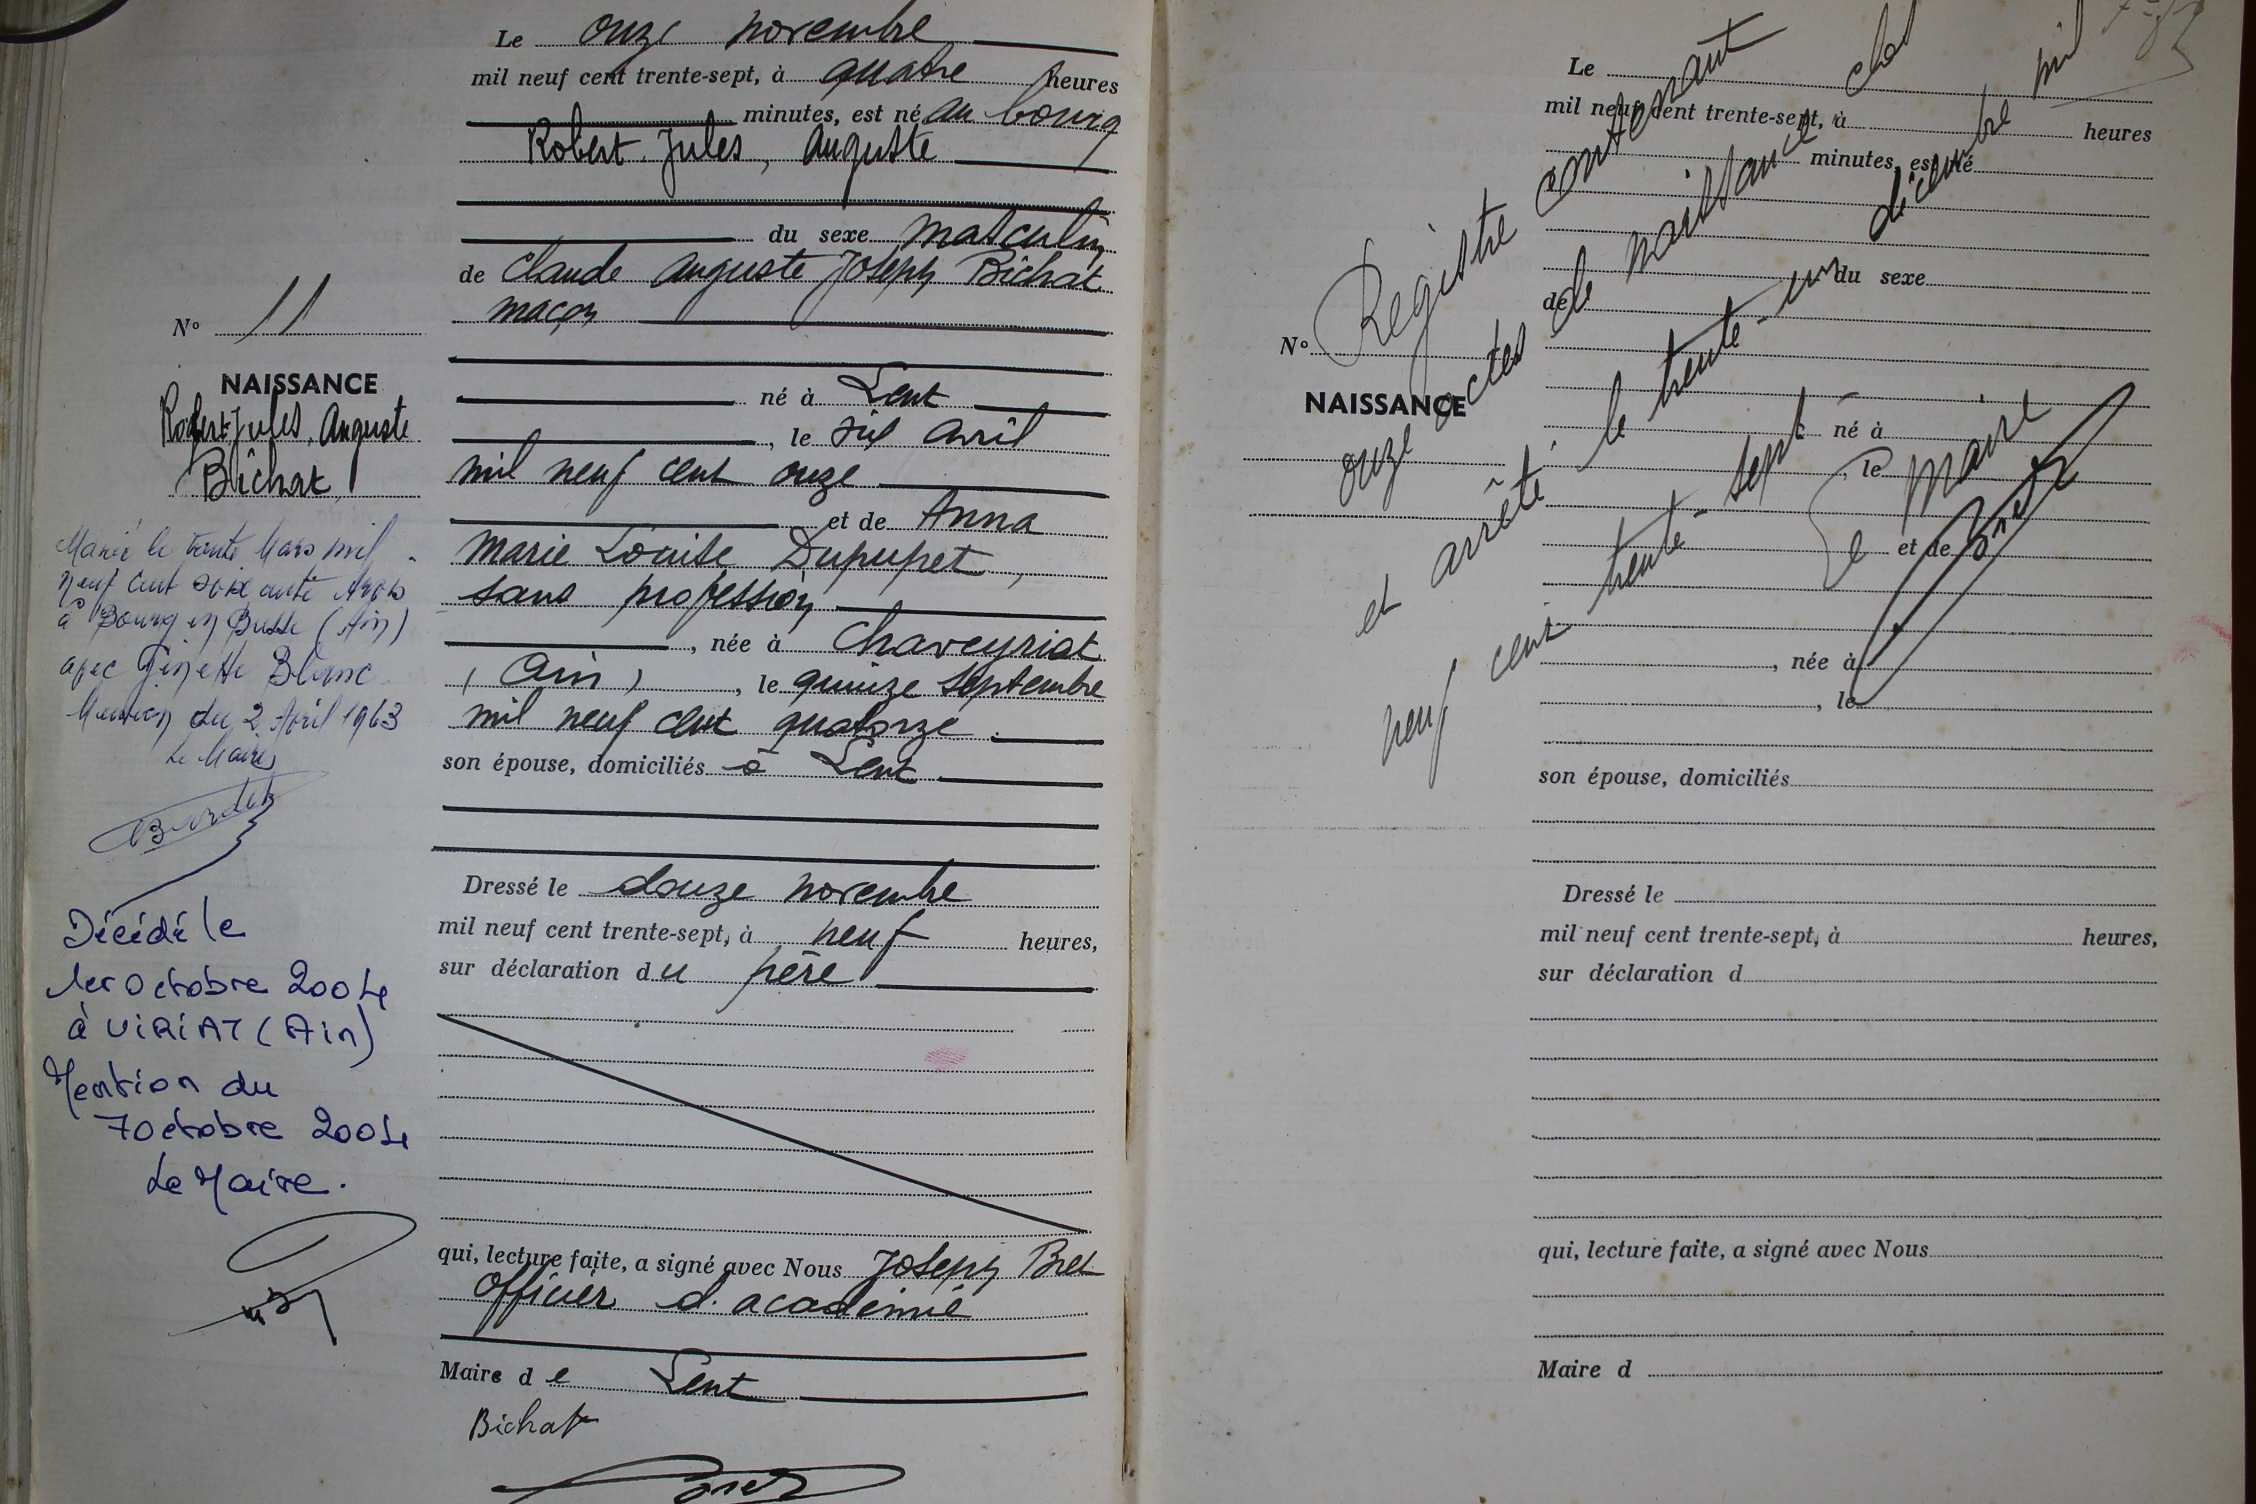 Le onze novembre
mil neuf cent trente-sept, à quatre heures
minutes, est né au bourg
Robert, Jules, Auguste
du sexe masculin
de Claude Auguste Joseph Bichat
maçon
né à Lent
, le six avril
mil neuf cent onze
et de Anna
Marie Louise Dupupet,
sans profession
, née à Chaveyriat
(Ain), le quinze septembre
mil neuf cent quatorze
son épouse, domiciliés à Lent
Dressé le douze novembre
mil neuf cent trente-sept, à neuf heures,
sur déclaration du père
qui, lecture faite, a signé avec Nous Joseph Bret
officier d'académie
Maire de Lent
Bichat
Bret
No 11
NAISSANCE
Robert, Jules, Auguste
Bichat
Marié le trente Mars mil
neuf cent soixante trois
à Bourg en Bresse (Ain)
avec Ginette Blanc
Mention du 2 Avril 1963
Le Maire
Décédé le
1er octobre 2004
à VIRIAT (Ain)
Mention du
7 octobre 2004
Le Maire.
Le
mil neuf cent trente-sept, à heures
minutes, est né
du sexe
de
né à
, le
et de
, née à
, le
son épouse, domiciliés
Dressé le
mil neuf cent trente-sept, à heures,
sur déclaration d
qui, lecture faite, a signé avec Nous
Maire d
No
NAISSANCE
Registre contenant
onze actes de naissance clos
et arrêté le trente-un décembre mil
neuf cent trente-sept
Le Maire
Bret